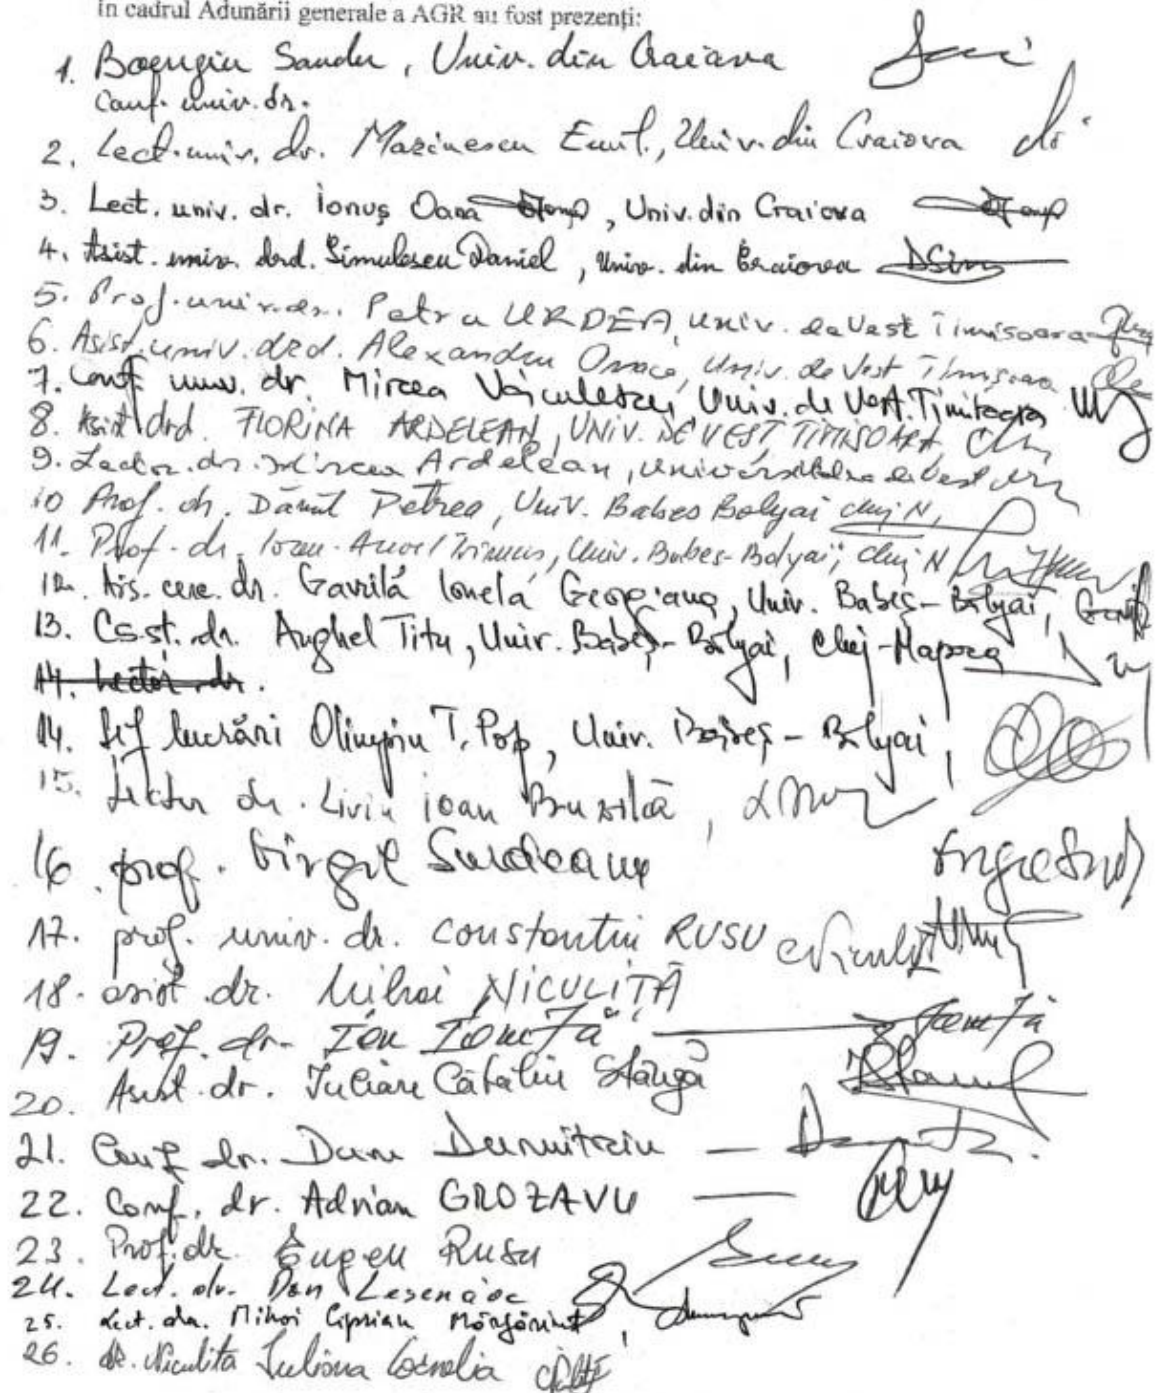 În cadrul Adunării generale a AGR au fost prezenți:
1. Boengiu Sandu, Univ. din Craiova
Conf. univ. dr.
2. Lect. univ. dr. Marinescu Emil, Univ. din Craiova
3. Lect. univ. dr. Ionuș Oana, Univ. din Craiova
4. Asist. univ. drd. Simulescu Daniel, Univ. din Craiova DSim
5. Prof. univ. dr. Petru URDEA, Univ. de Vest Timisoara
6. Asist. univ. drd. Alexandru Onaca, Univ. de Vest Timișoara
7. Conf. univ. dr. Mircea Voiculescu, Univ. de Vest Timișoara
8. Asist drd. FLORINA ARDELEAN, UNIV. DE VEST, TIMISOARA,
9. Lector. dr. Mircea Ardelean, Universitatea de Vest
10 Prof. dr. Dănuț Petrea, Univ. Babes Bolyai Cluj N,
11. Prof. dr. Ioan-Aurel Irimuș, Univ. Babeș-Bolyai, Cluj N
12. Asis. cerc. dr. Gavrilă Ionela Georgiana, Univ. Babeș-Bolyai,
13. Cs. șt. dr. Anghel Titu, Univ. Babeș-Bolyai, Cluj-Napoca
14. Lector dr.
14. Șef lucrări Olimpiu T. Pop, Univ. Babeș-Bolyai,
15. Lector dr. Liviu Ioan Buzilă,
16. prof. Virgil Surdeanu
17. prof. univ. dr. Constantin RUSU
18. asist. dr. Mihai NICULIȚĂ
19. Prof. dr. Ion Ioniță Ioniță
20. Asist. dr. Iulian Cătălin Stângă
21. Conf dr. Dan Dumitriu
22. Conf. dr. Adrian GROZAVU
23. Prof. dr. Eugen Rusu
24. Lect. dr. Dan Lesenciuc
25. Lect. dr. Mihai Ciprian Mărgărint,
26. dr. Niculita Iuliana Cornelia